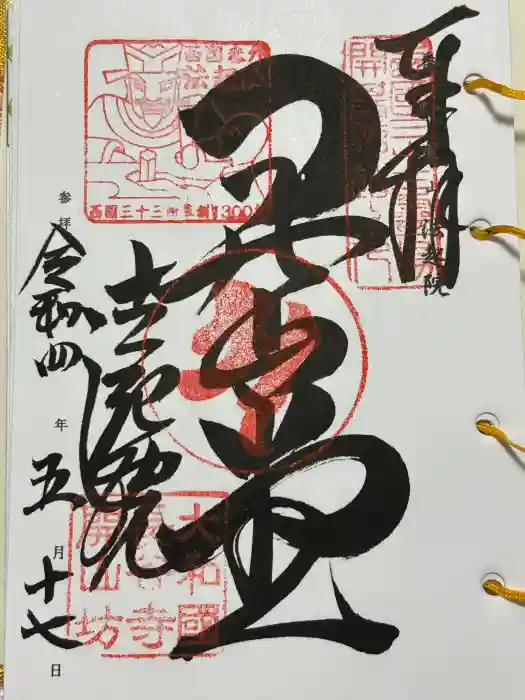 奉拝
山法起院
開山堂
法起院
参拝
令和四年五月十七日
西国三十三所草創1300年
大和國
長谷寺
開山坊